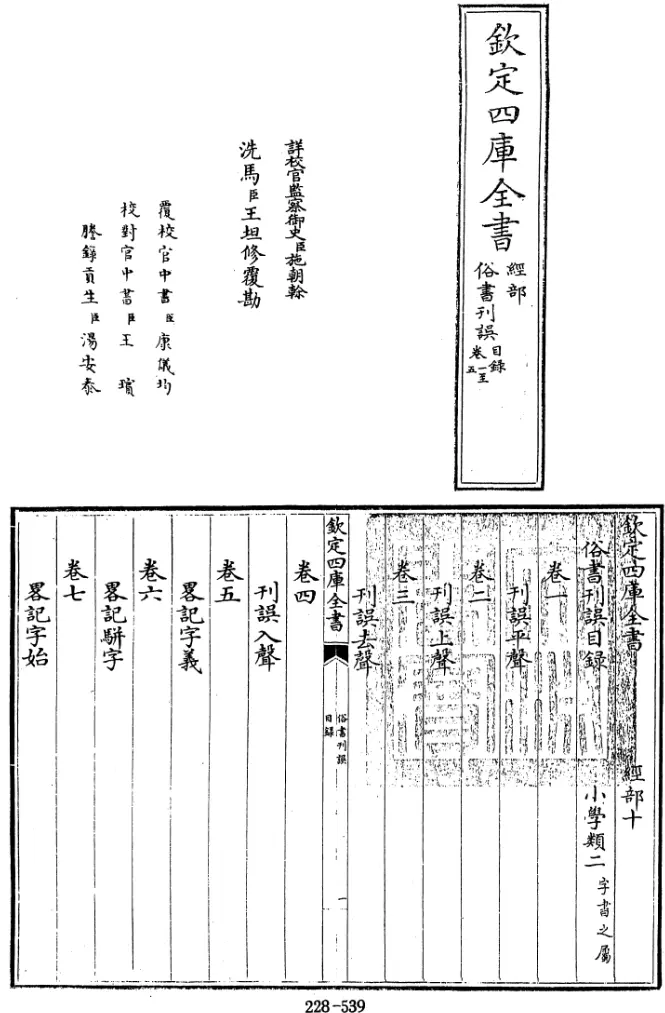 欽定四庫全書
經部
俗書刊誤
目錄
卷一至
五
詳校官監察御史臣施朝幹
洗馬臣王坦修覆勘
覆校官中書臣康儀鈞
校對官中書臣王瑸
謄錄貢生臣湯安泰
欽定四庫全書
經部十
俗書刊誤目錄
小學類二
字書之屬
卷一
刊誤平聲
卷二
刊誤上聲
卷三
刊誤去聲
欽定四庫全書
俗書刊誤
目錄
一
卷四
刊誤入聲
卷五
畧記字義
卷六
畧記駢字
卷七
畧記字始
228-539